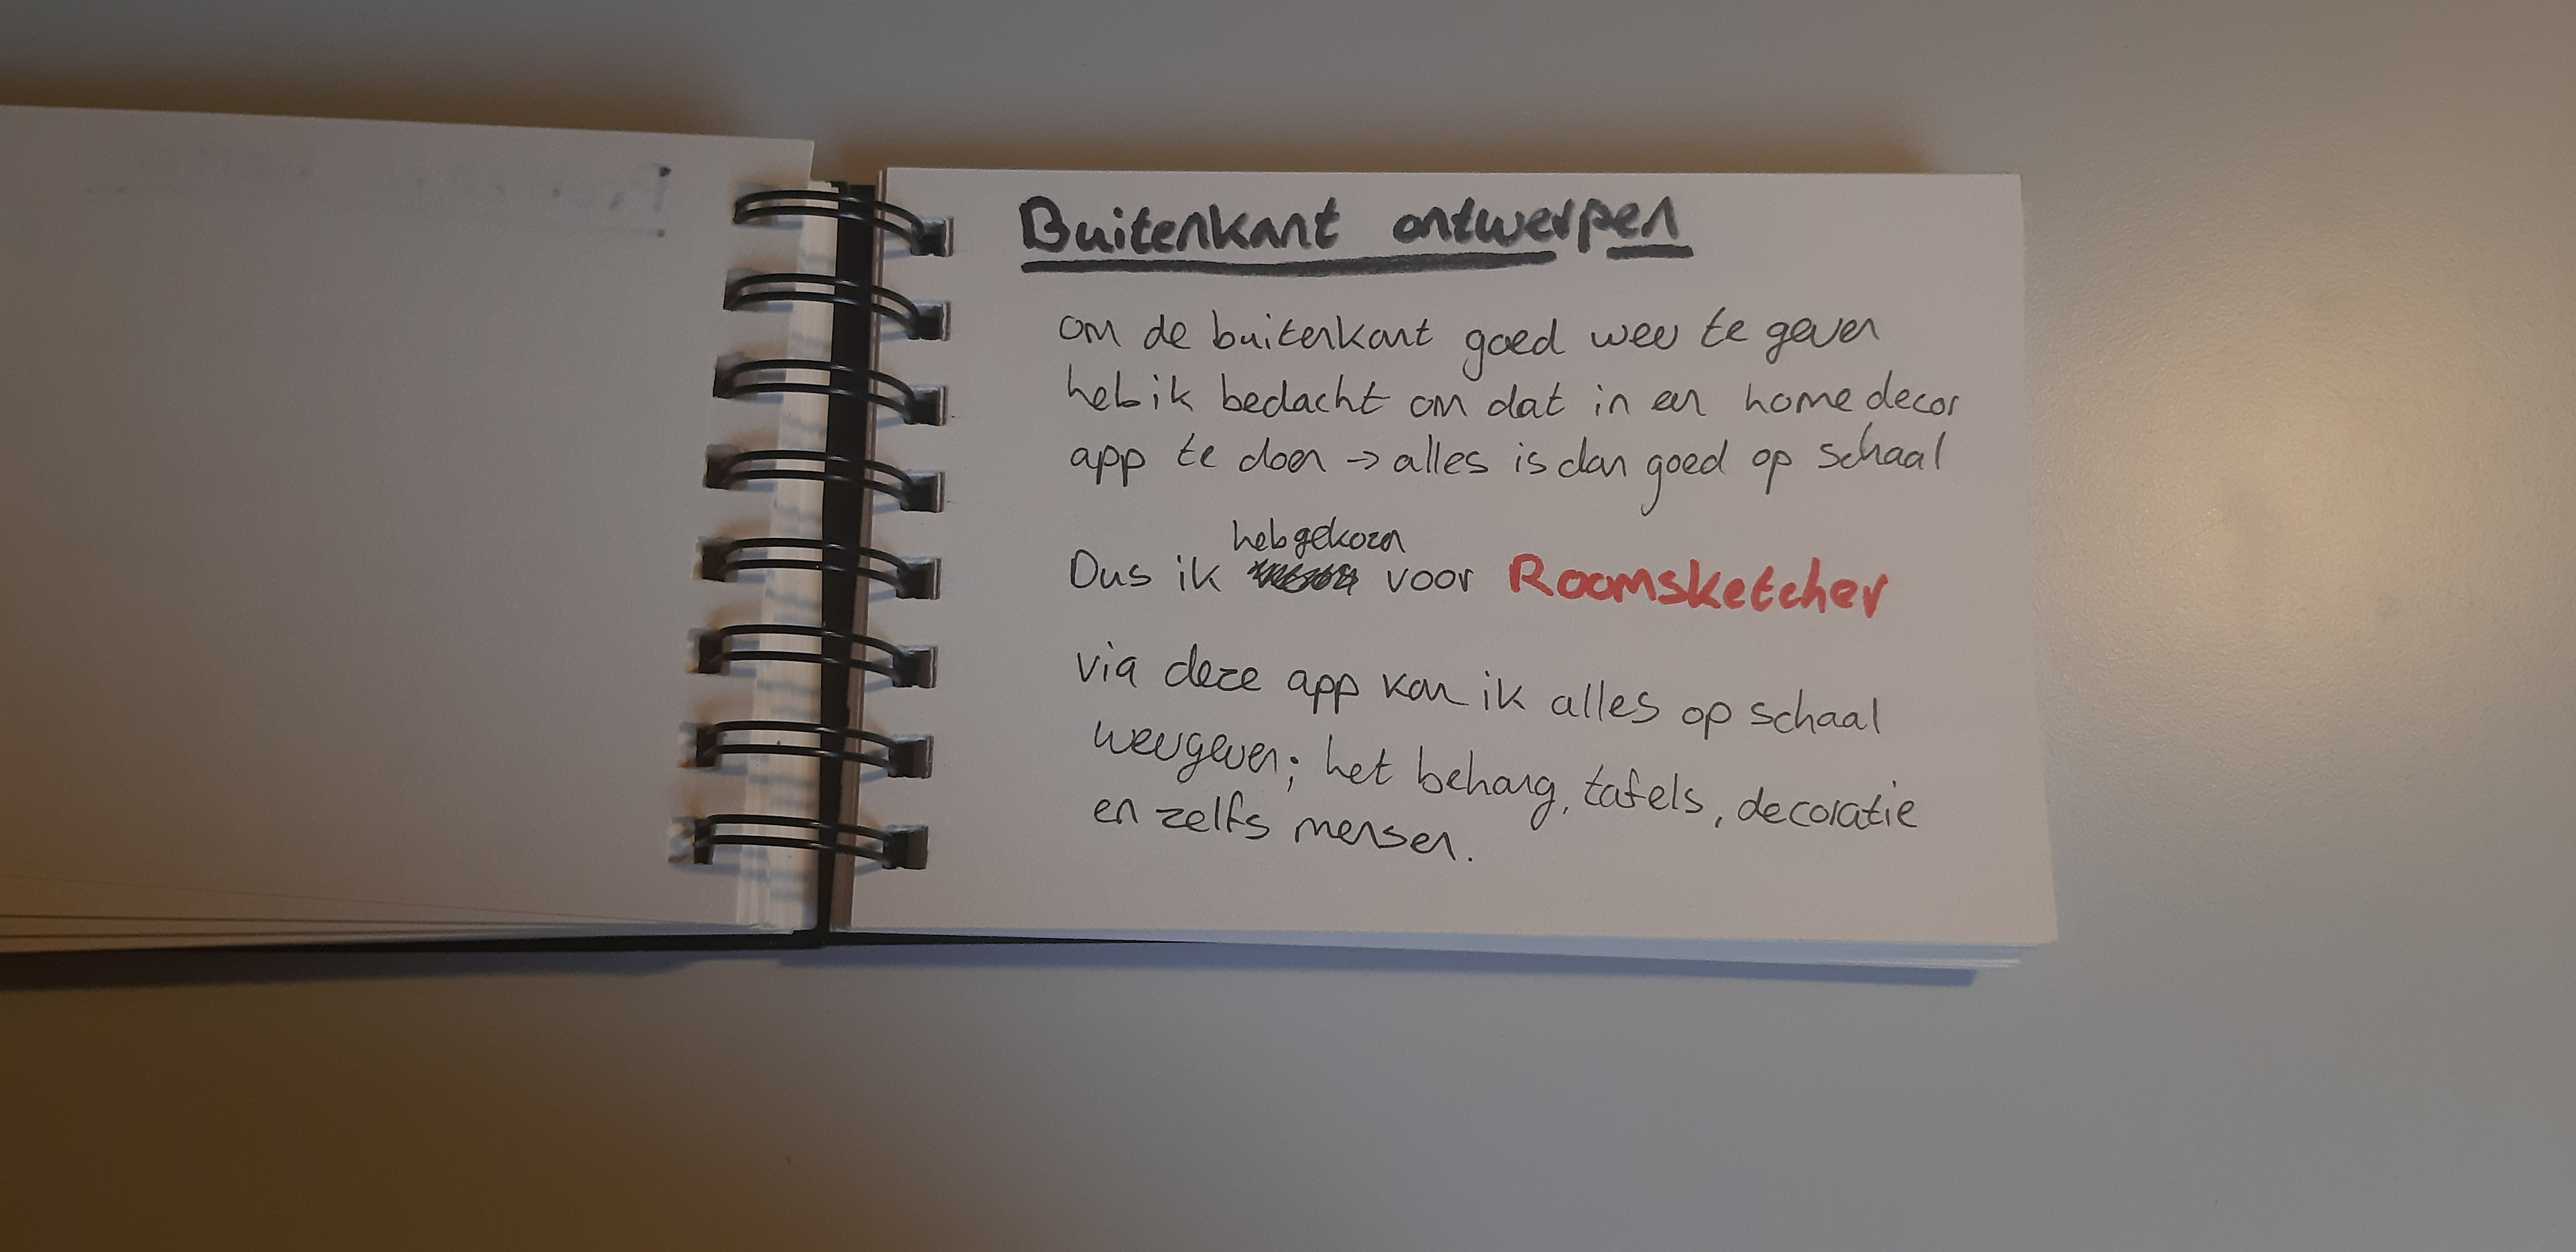 Buitenkant ontwerpen
om de buitenkant goed weer te geven
heb ik bedacht om dat in een home decor
app te doen → alles is dan goed op schaal
heb gekozen
Dus ik voor Roomsketcher
via deze app kan ik alles op schaal
weergeven; het behang, tafels, decoratie
en zelfs mensen.